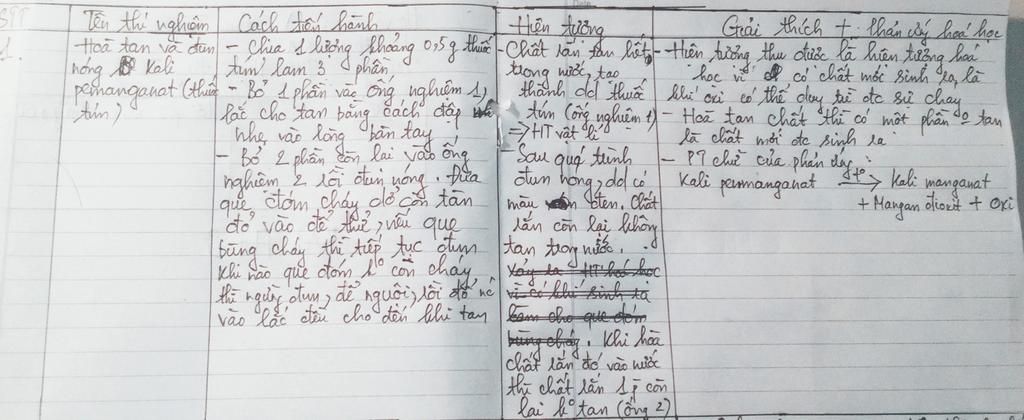 STT
Tên thí nghiệm
Cách tiến hành
Hiện tượng
Giải thích + phản ứng hoá học
1.
Hoà tan và đun
nóng Kali
pemanganat (thuốc
tím)
- Chia 1 lượng khoảng 0,5g thuốc
tím làm 3 phần
- Bỏ 1 phần vào ống nghiệm 1,
lắc cho tan bằng cách đập
nhẹ vào lòng bàn tay
- Bỏ 2 phần còn lại vào ống
nghiệm 2 rồi đun nóng. Đưa
que đóm cháy dở còn tàn
đỏ vào để thử, nếu que
bùng cháy thì tiếp tục đun
Khi nào que đóm k° còn cháy
thì ngừng đun, để nguội, rồi đổ nc
vào lắc đều cho đến khi tan
- Chất rắn tan hết
trong nước, tạo
thành dd thuốc
tím (ống nghiệm 1)
=> HT vật lí
- Sau quá trình
đun nóng, dd có
màu đen. Chất
rắn còn lại không
tan trong nước.
Xảy ra HT hoá học
vì có khí sinh ra
làm cho que đóm
bùng cháy. Khi hoà
chất rắn đó vào nước
thì chất rắn 1 p còn
lại k° tan (ống 2)
- Hiện tượng thu được là hiện tượng hoá
học vì có chất mới sinh ra, là
khí oxi có thể duy trì đc sự cháy
- Hoà tan chất thì có một phần o tan
là chất mới đc sinh ra
- PT chữ của phản ứng:
Kali permanganat t° → Kali manganat
+ Mangan đioxit + Oxi